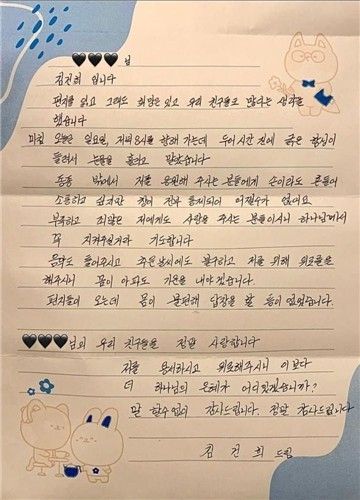 🖤🖤🖤님
김건희 입니다
편지를 읽고 그래도 희망은 있고 우리 친구들도 많다는 생각을
했습니다
오늘은 일요일, 저녁 8시를 향해 가는데 두어시간 전에 굵은 함성이
들려서 눈물을 흘리고 말았습니다
종종 밖에서 저를 응원해 주시는 분들에게 손이라도 흔들어
소통하고 싶지만 창이 전과 통제되어 어쩔수가 없어요
부족하고 죄많은 저에게도 사랑을 주시는 분들이시니 하나님께서
꼭 지켜주실거라 기도합니다
문학도 좋아하시고 추운날씨에도 불구하고 저를 위해 위로들을
해주시니 몸이 아파도 기운을 내야겠습니다
편지들이 오는데 몸이 불편해 답장을 할 둥이 없었습니다.
🖤🖤🖤님의 우리 친구들을 정말 사랑합니다
저를 용서하시고 위로해주시니 이보다
더 하나님의 은혜가 어디있겠습니까?
말 할수없이 감사드립니다. 정말 감사드립니다
김건희 드림